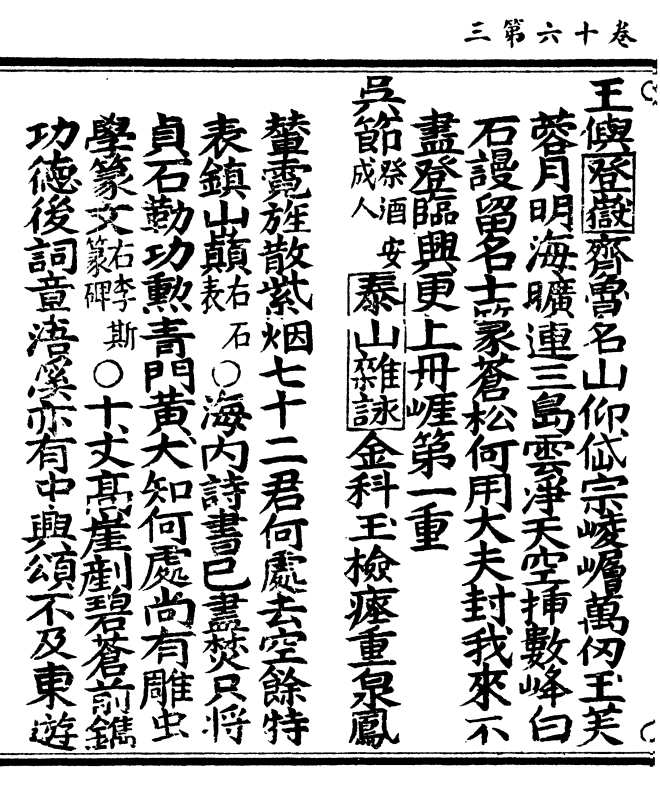 卷十六第三
王㠘登嶽齊魯名山仰岱宗崚嶒萬仭玉芙
蓉月明海曠連三島雲淨天空揷數峰白
石謾留名士篆蒼松何用大夫封我來不
盡登臨興更上丹崕第一重
吳節祭酒安成人泰山雜詠金科玉檢瘞重泉鳳
輦霓旌散紫烟七十二君何處去空餘特
表鎮山巔右石表○海内詩書已盡焚只將
貞石勒功勲青門黃犬知何處尚有雕虫
學篆文右李斯篆碑○十丈髙崖劃碧蒼前鐫
功德後詞章浯溪亦有中興頌不及東遊